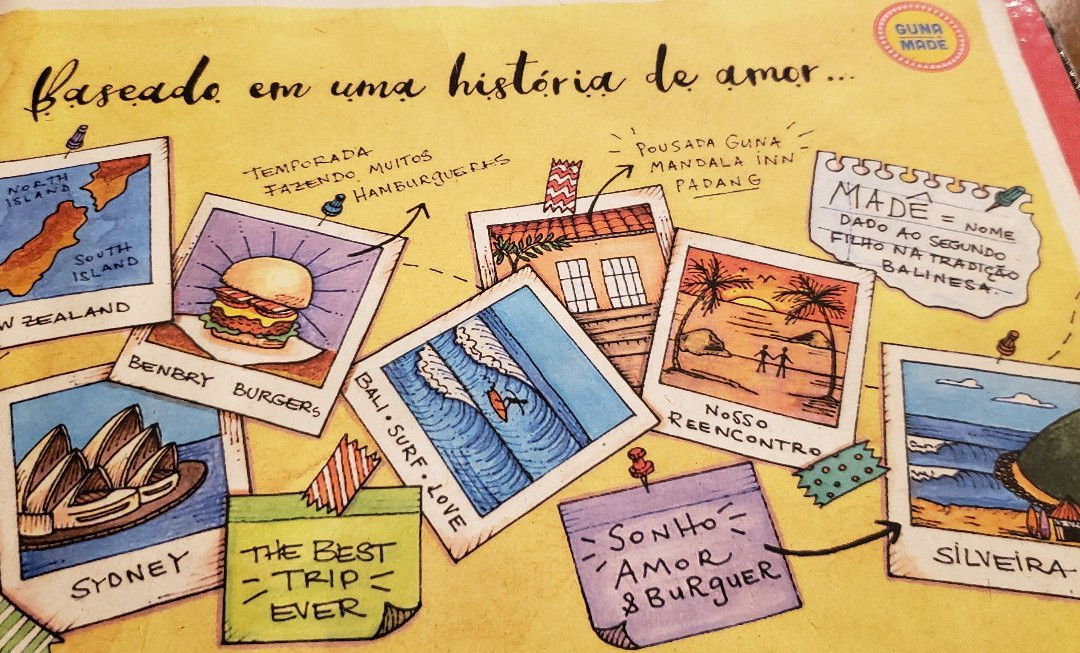 GUNA
MADÊ
Baseado em uma história de amor...
TEMPORADA
FAZENDO MUITOS
HAMBURGUERES
POUSADA GUNA
MANDALA INN
PADANG
MADÊ = NOME
DADO AO SEGUNDO
FILHO NA TRADIÇÃO
BALINESA.
NORTH
ISLAND
SOUTH
ISLAND
W ZEALAND
BENBRY BURGERS
BALI • SURF • LOVE
NOSSO
REENCONTRO
SYDNEY
THE BEST
TRIP
EVER
SONHO
AMOR
& BURGUER
SILVEIRA